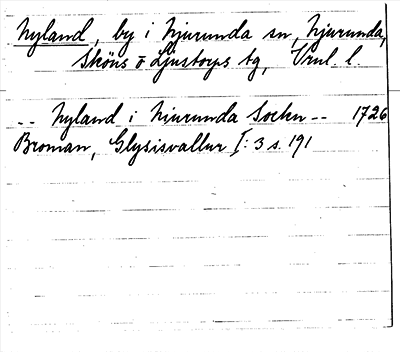 Nyland, by i Njurunda sn, Njurunda,
Sköns o Ljustorps tg, Vrnl. l.
-- Nyland i Niurunda Socken -- 1726
Broman, Glysisvallur I: 3 s. 191